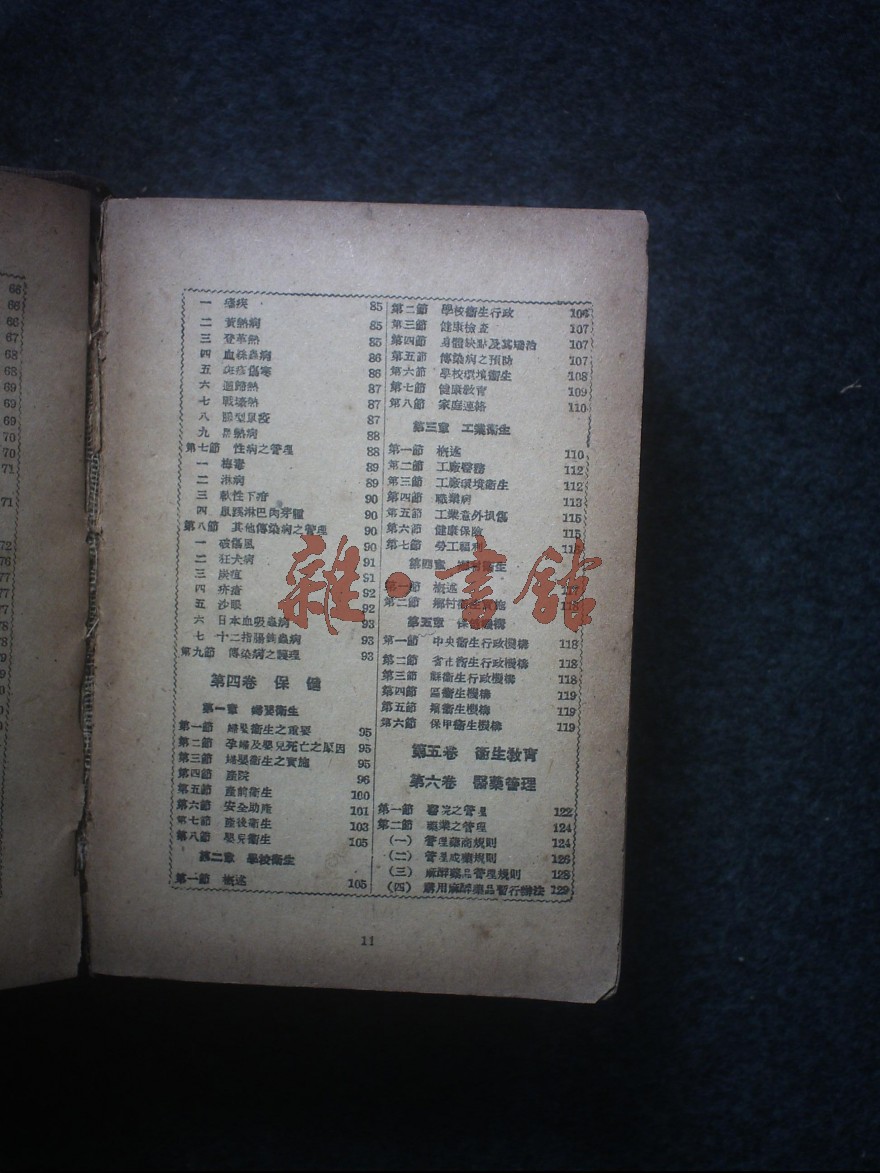 66
66
66
67
68
68
69
69
69
70
71
71
72
76
77
77
77
78
78
一 瘧疾 85
二 黃熱病 85
三 登革熱 85
四 血絲蟲病 86
五 斑疹傷寒 86
六 迴歸熱 87
七 戰壕熱 87
八 腺型鼠疫 87
九 黑熱病 88
第七節 性病之管理 88
一 梅毒 89
二 淋病 89
三 軟性下疳 90
四 鼠蹊淋巴肉芽腫 90
第八節 其他傳染病之管理 90
一 破傷風 90
二 狂犬病 91
三 炭疽 91
四 疥瘡 92
五 沙眼 92
六 日本血吸蟲病 93
七 十二指腸鈎蟲病 93
第九節 傳染病之護理 93
第四卷 保健
第一章 婦嬰衛生
第一節 婦嬰衛生之重要 95
第二節 孕婦及嬰兒死亡之原因 95
第三節 婦嬰衛生之實施 95
第四節 產院 96
第五節 產前衛生 100
第六節 安全助產 101
第七節 產後衛生 103
第八節 嬰兒衛生 105
第二章 學校衛生
第一節 概述 105
第二節 學校衛生行政 106
第三節 健康檢查 107
第四節 身體缺點及其矯治 107
第五節 傳染病之預防 107
第六節 學校環境衛生 108
第七節 健康教育 109
第八節 家庭連絡 110
第三章 工業衛生
第一節 概述 110
第二節 工廠醫務 112
第三節 工廠環境衛生 112
第四節 職業病 113
第五節 工業意外損傷 115
第六節 健康保險 115
第七節 勞工福利
第四章 鄉村衛生
第一節 概述 117
第二節 鄉村衛生實施 118
第五章 保健機構
第一節 中央衛生行政機構 118
第二節 省市衛生行政機構 118
第三節 縣衛生行政機構 118
第四節 區衛生機構 119
第五節 鄉衛生機構 119
第六節 保甲衛生機構 119
第五卷 衛生教育
第六卷 醫藥管理
第一節 醫院之管理 122
第二節 藥業之管理 124
(一) 管理藥商規則 124
(二) 管理成藥規則 126
(三) 麻醉藥品管理規則 128
(四) 購用麻醉藥品暫行辦法 129
11
雜·書館